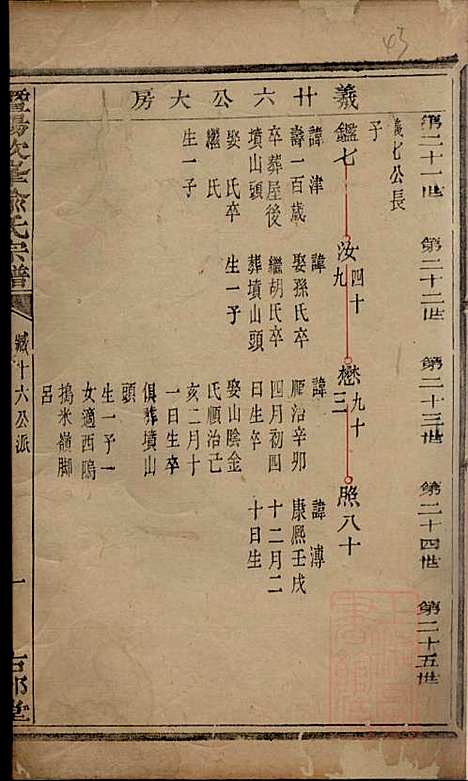 43
第二十一世　第二十二世　第二十三世　第二十四世　第二十五世
義廿六公大房
義七公長
子
鑑七　汝四十九　懋九十三　照八十
諱津
壽一百歲
卒葬屋後
墳山頭
娶氏卒
繼氏
生一子
諱
娶孫氏卒
繼胡氏卒
葬墳山頭
生一子
諱
順治辛卯
四月初四
日生卒
娶山陰金
氏順治己
亥二月十
一日生卒
俱葬墳山
頭
生一子一
女適西塢
搗米嶺脚
呂
諱溥
康熙壬戌
十二月二
十日生
暨陽次峯俞氏宗譜
臧十六公派
一